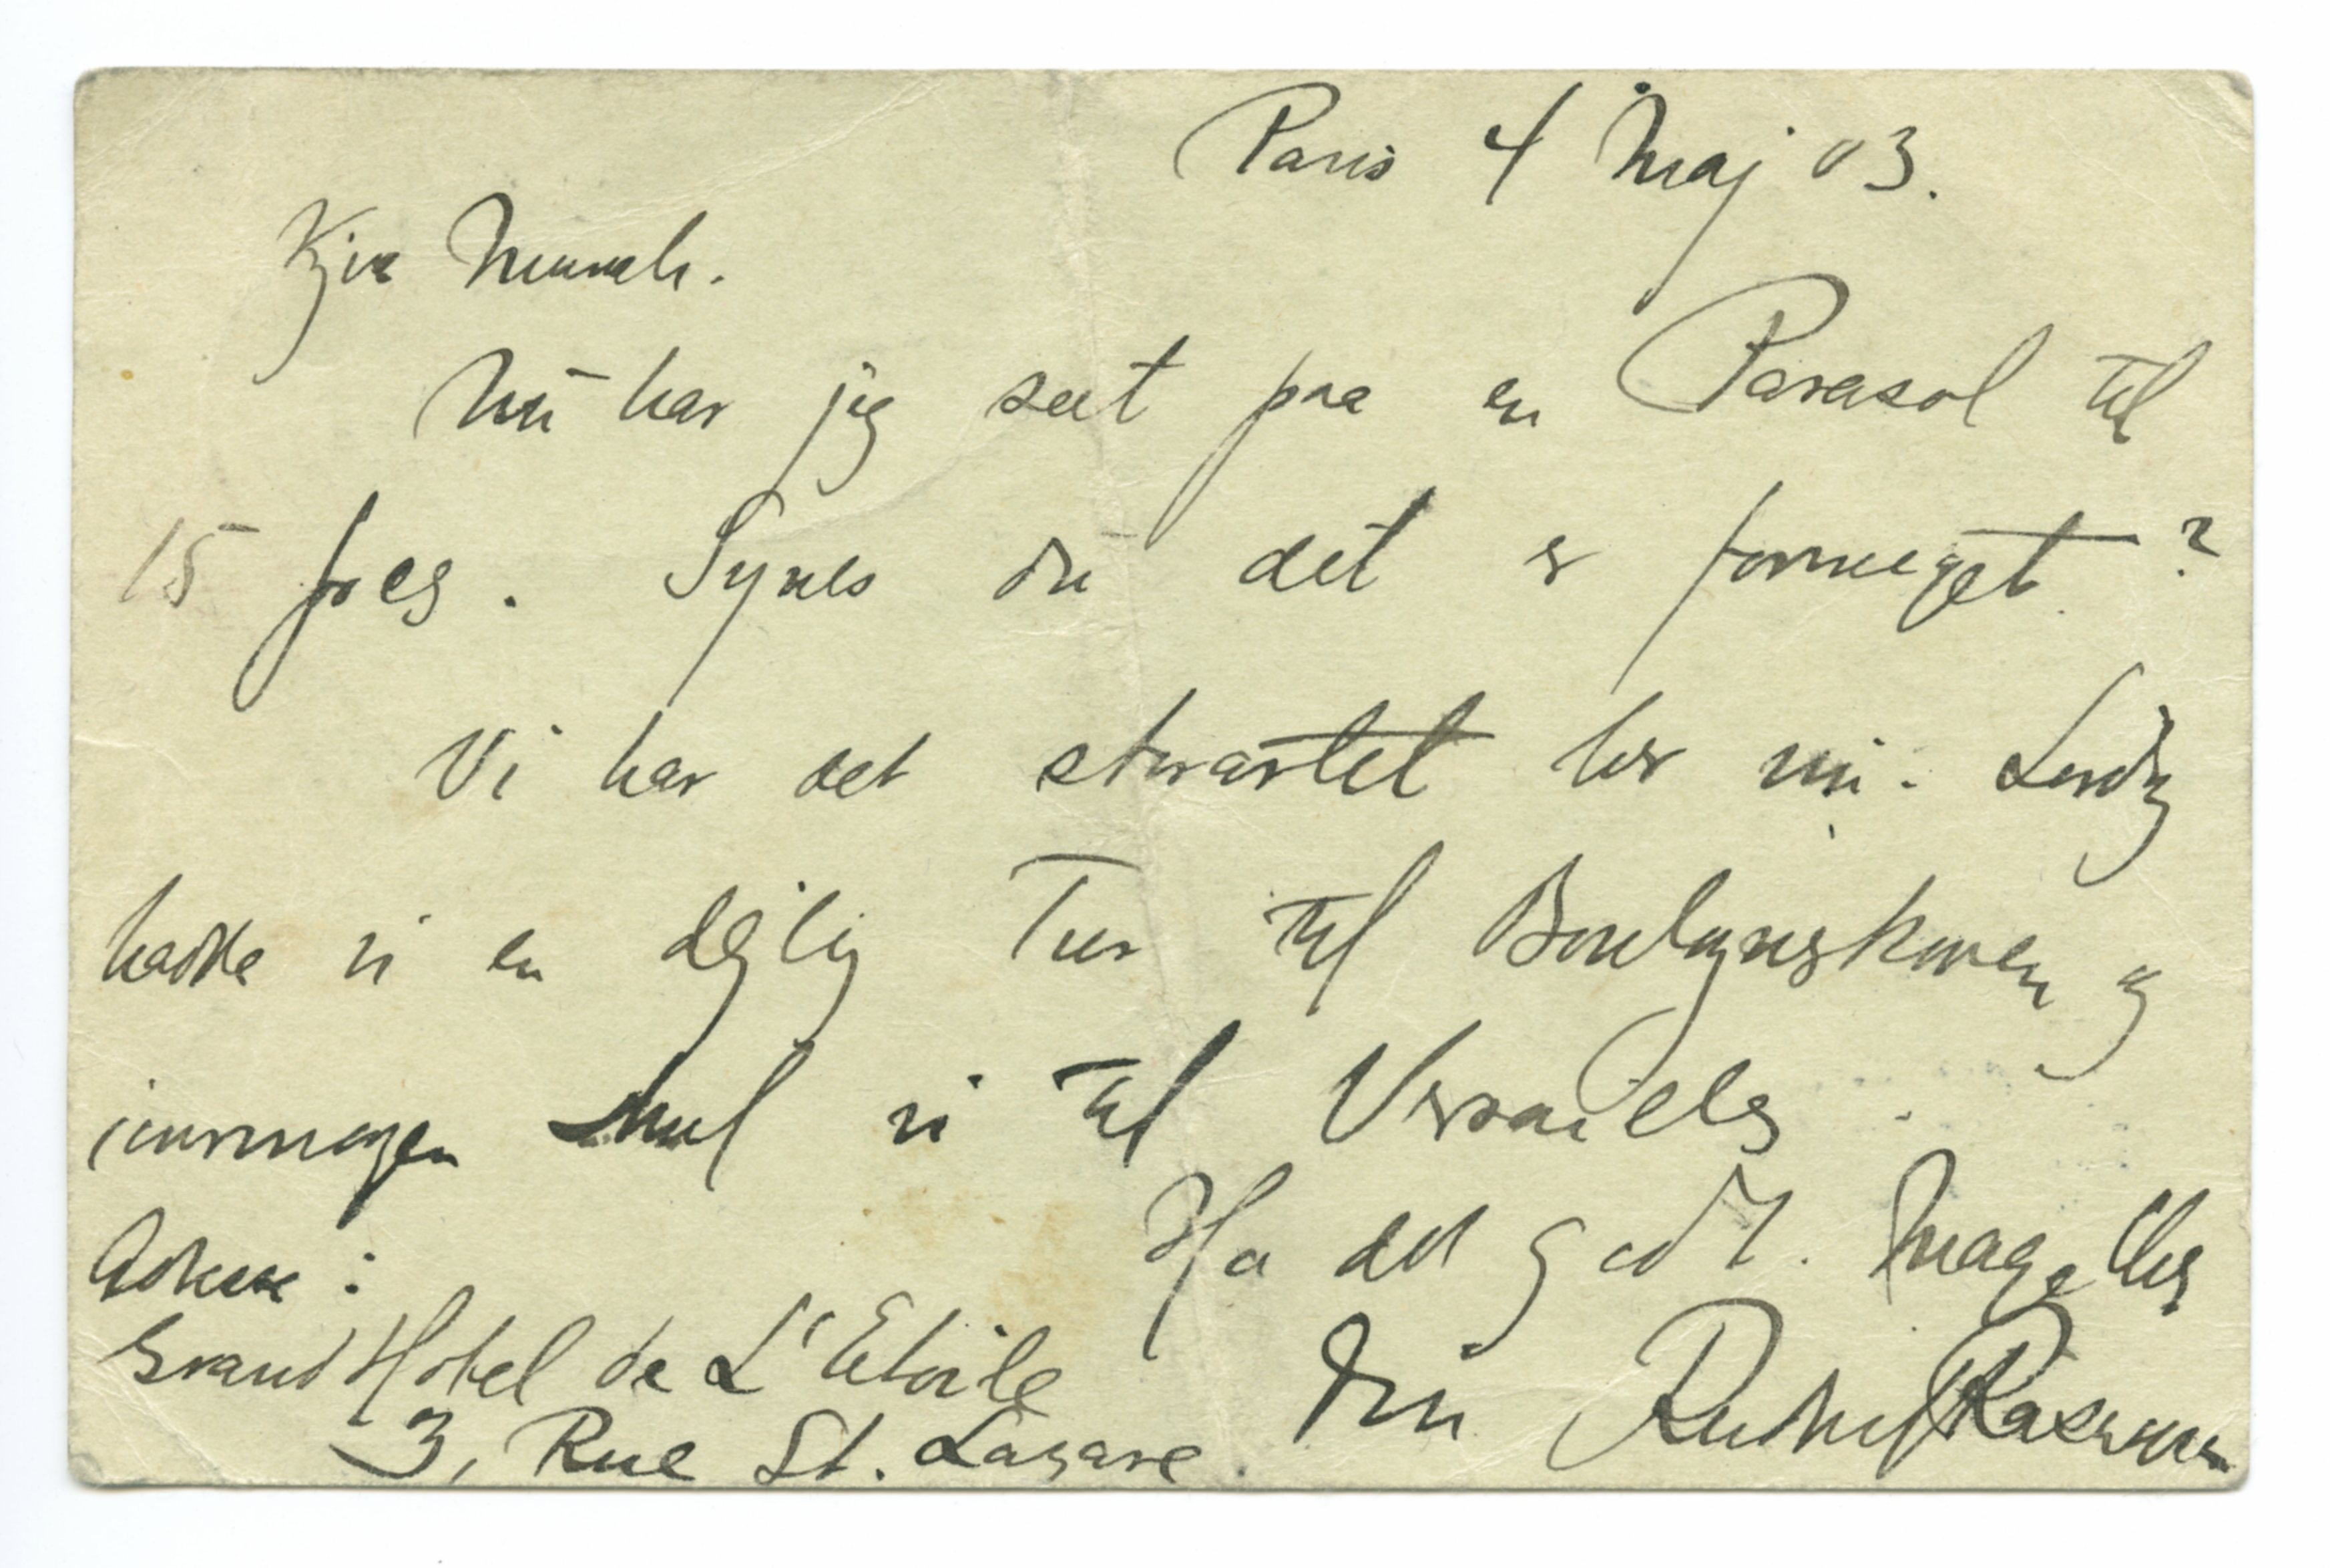 Paris 4 Maj 03.
Kjære Munch.
Nu har jeg seet paa en Parasol til
15 frcs. Synes du det er formeget?
Vi har det storartet her nu. Lørdag
hadde vi en dejlig Tur til Boulogneskoven og
imorgen skal vi til Versailels.
Ha det godt. Mag
Adresse:
Grand Hotel de L'Etoile
din Rudolf Rasmussen
3, Rue St. Lazare.